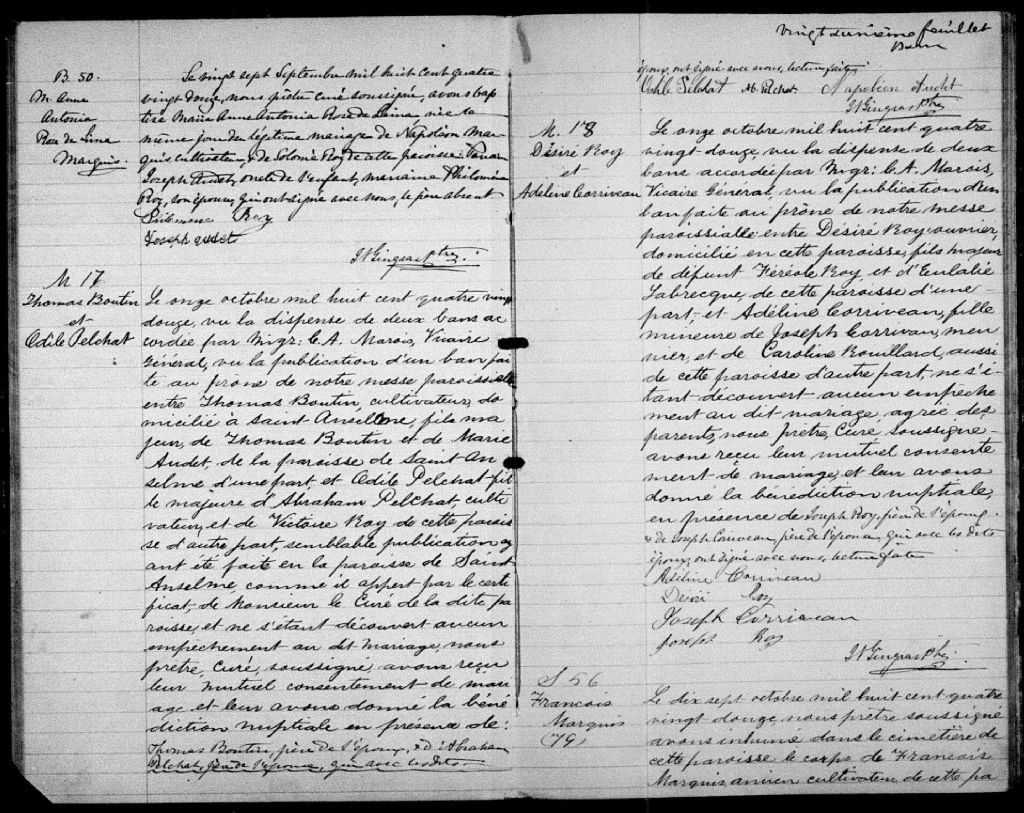 B. 50.
M. Anne
Antonia
Rose de Lima
Marquis.
Le vingt sept Septembre mil huit cent quatre
vingt douze, nous prêtre curé soussigné, avons bap
tisé Marie Anne Antonia Rose de Lima, née le
même jour du légitime mariage de Napoléon Mar
quis cultivateur & de Solonie Roy de cette paroisse. Parrain
Joseph Audet, oncle de l'enfant, marraine Philomène
Roy, son épouse, qui ont signé avec nous, le père absent
Philomene Roy
Joseph audet
J. N. Gingras Ptre.
M 17
Thomas Boutin
et
Odile Pelchat
Le onze octobre mil huit cent quatre vingt
douze, vu la dispense de deux bans ac
cordée par Mgr: C. A. Marois, Vicaire
Général, vu la publication d'un ban fai
te au prone de notre messe paroissiale
entre Thomas Boutin, cultivateur, do
micilié à saint Anselme, fils ma
jeur, de Thomas Boutin et de Marie
Audet, de la paroisse de Saint An
selme d'une part, et Odile Pelchat fil
le majeure d'Abraham Pelchat, culti
vateur, et de Victoire Roy de cette parois
se d'autre part, semblable publication ay
ant été faite en la paroisse de Saint
Anselme, comme il appert par le certi
ficat, de Monsieur le Curé de la dite pa
roisse, et ne s'étant découvert aucun
empêchement au dit mariage, nous
prêtre, Curé, soussigné avons reçu
leur mutuel consentement de mari
age et leur avons donné la béné
diction nuptiale en présence de:
Thomas Boutin, père de l'époux, & d'Abraham
Pelchat, père de l'épouse, qui avec les dits
vingt unième feuillet
époux, ont signé avec nous, lecture faite,
Odile Pelchat Ab. Pelchat Napoléon Audet
J. N. Gingras Ptre
M. 18
Désiré Roy
et
Adéline Corriveau
Le onze octobre mil huit cent quatre
vingt douze, vu la dispense de deux
bans accordée par Mgr: C. A. Marois,
Vicaire Général, vu la publication d'un
ban faite au prône de notre messe
paroissiale entre Désiré Roy, ouvrier,
domicilié en cette paroisse, fils majeur
de défunt Féréole Roy et d'Eulalie
Labrecque, de cette paroisse d'une
part, et Adéline Corriveau, fille
mineure de Joseph Corriveau, meu
nier, et de Caroline Rouillard, aussi
de cette paroisse d'autre part, ne s'é
tant découvert aucun empêche
ment au dit mariage, agrée des
parents, nous prêtre, Curé soussigné
avons reçu leur mutuel consente
ment de mariage, et leur avons
donné la bénédiction nuptiale,
en présence de Joseph Roy, frère de l'époux
& de Joseph Corriveau, père de l'épouse, qui avec les dits
époux, ont signé avec nous, lecture faite
Adéline Corriveau
Désiré Roy
Joseph Corriveau
Joseph Roy
J. N. Gingras Ptre.
S 56
Francois
Marquis
(79)
Le dix sept octobre mil huit cent quatre
vingt douze nous prêtre soussigné
avons inhumé dans le cimetière de
cette paroisse le corps de Francois
Marquis ancien cultivateur de cette pa